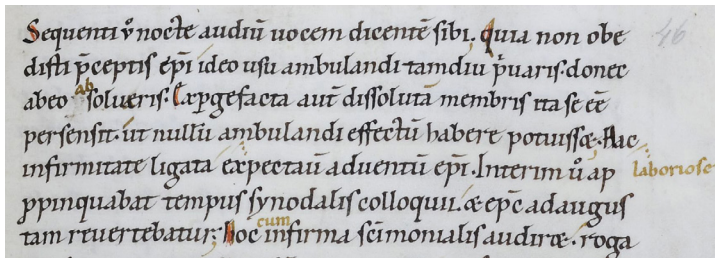 Sequenti ṽ nocte audiū uocem dicentē sibi. quia non obe
disti p̄ceptis ep̄i ideo usu ambulandi tamdiu p̄uaris. donec
abeo ab solueris. Exp̱gefacta aut̄ dissolutā membris ita se eē
persensit. ut nullū ambulandi effectū habere potuisset. Hac
infirmitate ligata expectauī aduentū ep̄i. Interim ṽ ap laboriose
ꝓpinquabat tempus synodalis colloquii. & ep̄c ad augus
tam reuertebatur; Hoc cum infirma sc̄imonialis audiret. roga